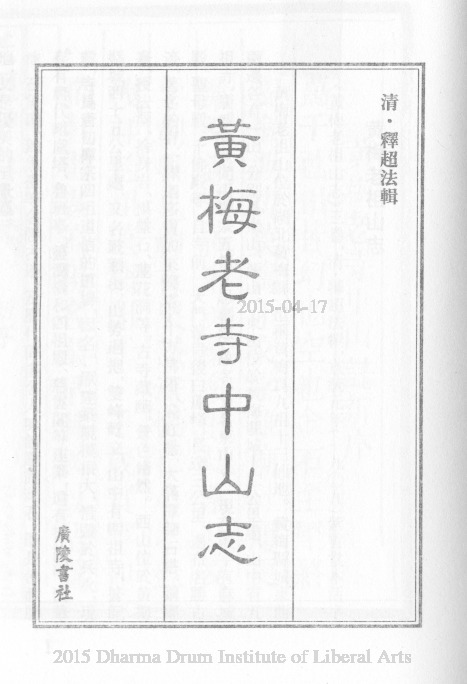 清·釋超法輯
黃梅老寺中山志
廣陵書社
2015-04-17
2015 Dharma Drum Institute of Liberal Arts